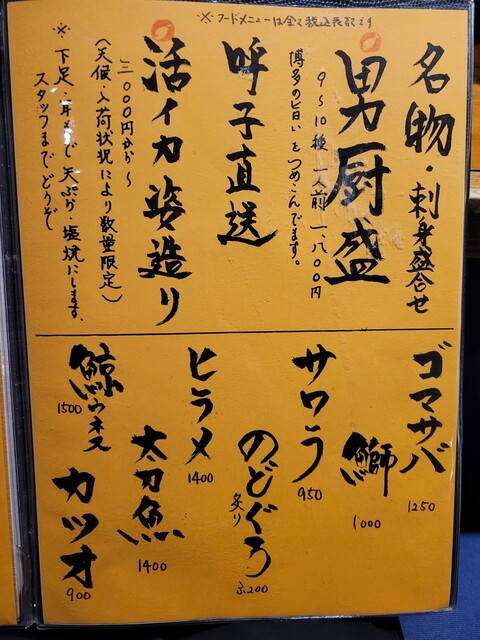 ※フードメニューは全て税込表記です
名物・刺身盛合せ
男厨盛
9〜10種 一人前 一、八〇〇円
博多の旨いをつめこんでます。
呼子直送
活イカ姿造り
三〇〇〇円から〜
(天候・入荷状況により数量限定)
※下足・耳
天ぷら・塩焼にします。
スタッフまでどうぞ
ゴマサバ
1250
鰤
1000
サワラ
950
のどぐろ
炙り
2,200
ヒラメ
1400
太刀魚
1400
鯨ウネス
1500
カツオ
900